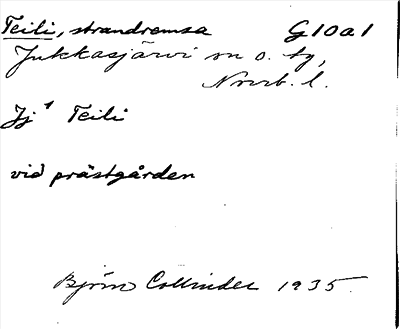 Teili, strandremsa G10a1
Jukkasjärvi sn o. tg,
Norrb. l.
Jj¹ Teili
vid prästgården
Björn Collinder 1935